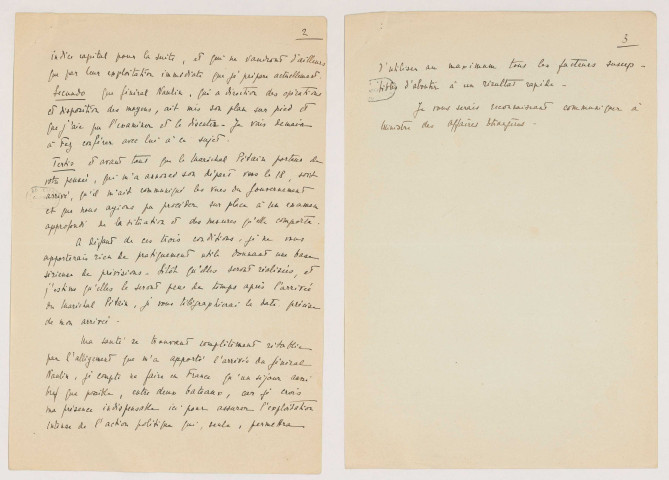 2
indice capital pour la suite, et qui ne vaudront d'ailleurs
que par leur exploitation immédiate que je prépare actuellement.
Secundo que Général Naulin, qui a direction des opérations
et disposition des moyens, ait mis son plan sur pied et
que j'aie pu l'examiner et le discuter. Je vais demain
à Fez conférer avec lui à ce sujet.
Tertio et avant tout que le Maréchal Pétain porteur de
votre pensée, qui m'a annoncé son départ vers le 18, soit
arrivé, qu'il m'ait communiqué les vues du Gouvernement
et que nous ayions pu procéder sur place à un examen
approfondi de la situation et des mesures qu'elle comporte.
A défaut de ces trois conditions, je ne vous
apporterais rien de pratiquement utile donnant une base
sérieuse de prévisions. Sitôt qu'elles seront réalisées, et
j'estime qu'elles le seront peu de temps après l'arrivée
du Maréchal Pétain, je vous télégraphierai la date précise
de mon arrivée.
Ma santé se trouvant complètement rétablie
par l'allègement que m'a apporté l'arrivée du Général
Naulin, je compte ne faire en France qu'un séjour aussi
bref que possible, entre deux bateaux, car je crois
ma présence indispensable ici pour assurer l'exploitation
intense de l'action politique qui, seule, permettra
3
d'utiliser au maximum tous les facteurs suscep-
tibles d'aboutir à un résultat rapide.
Je vous serais reconnaissant communiquer à
Ministre des Affaires Etrangères.